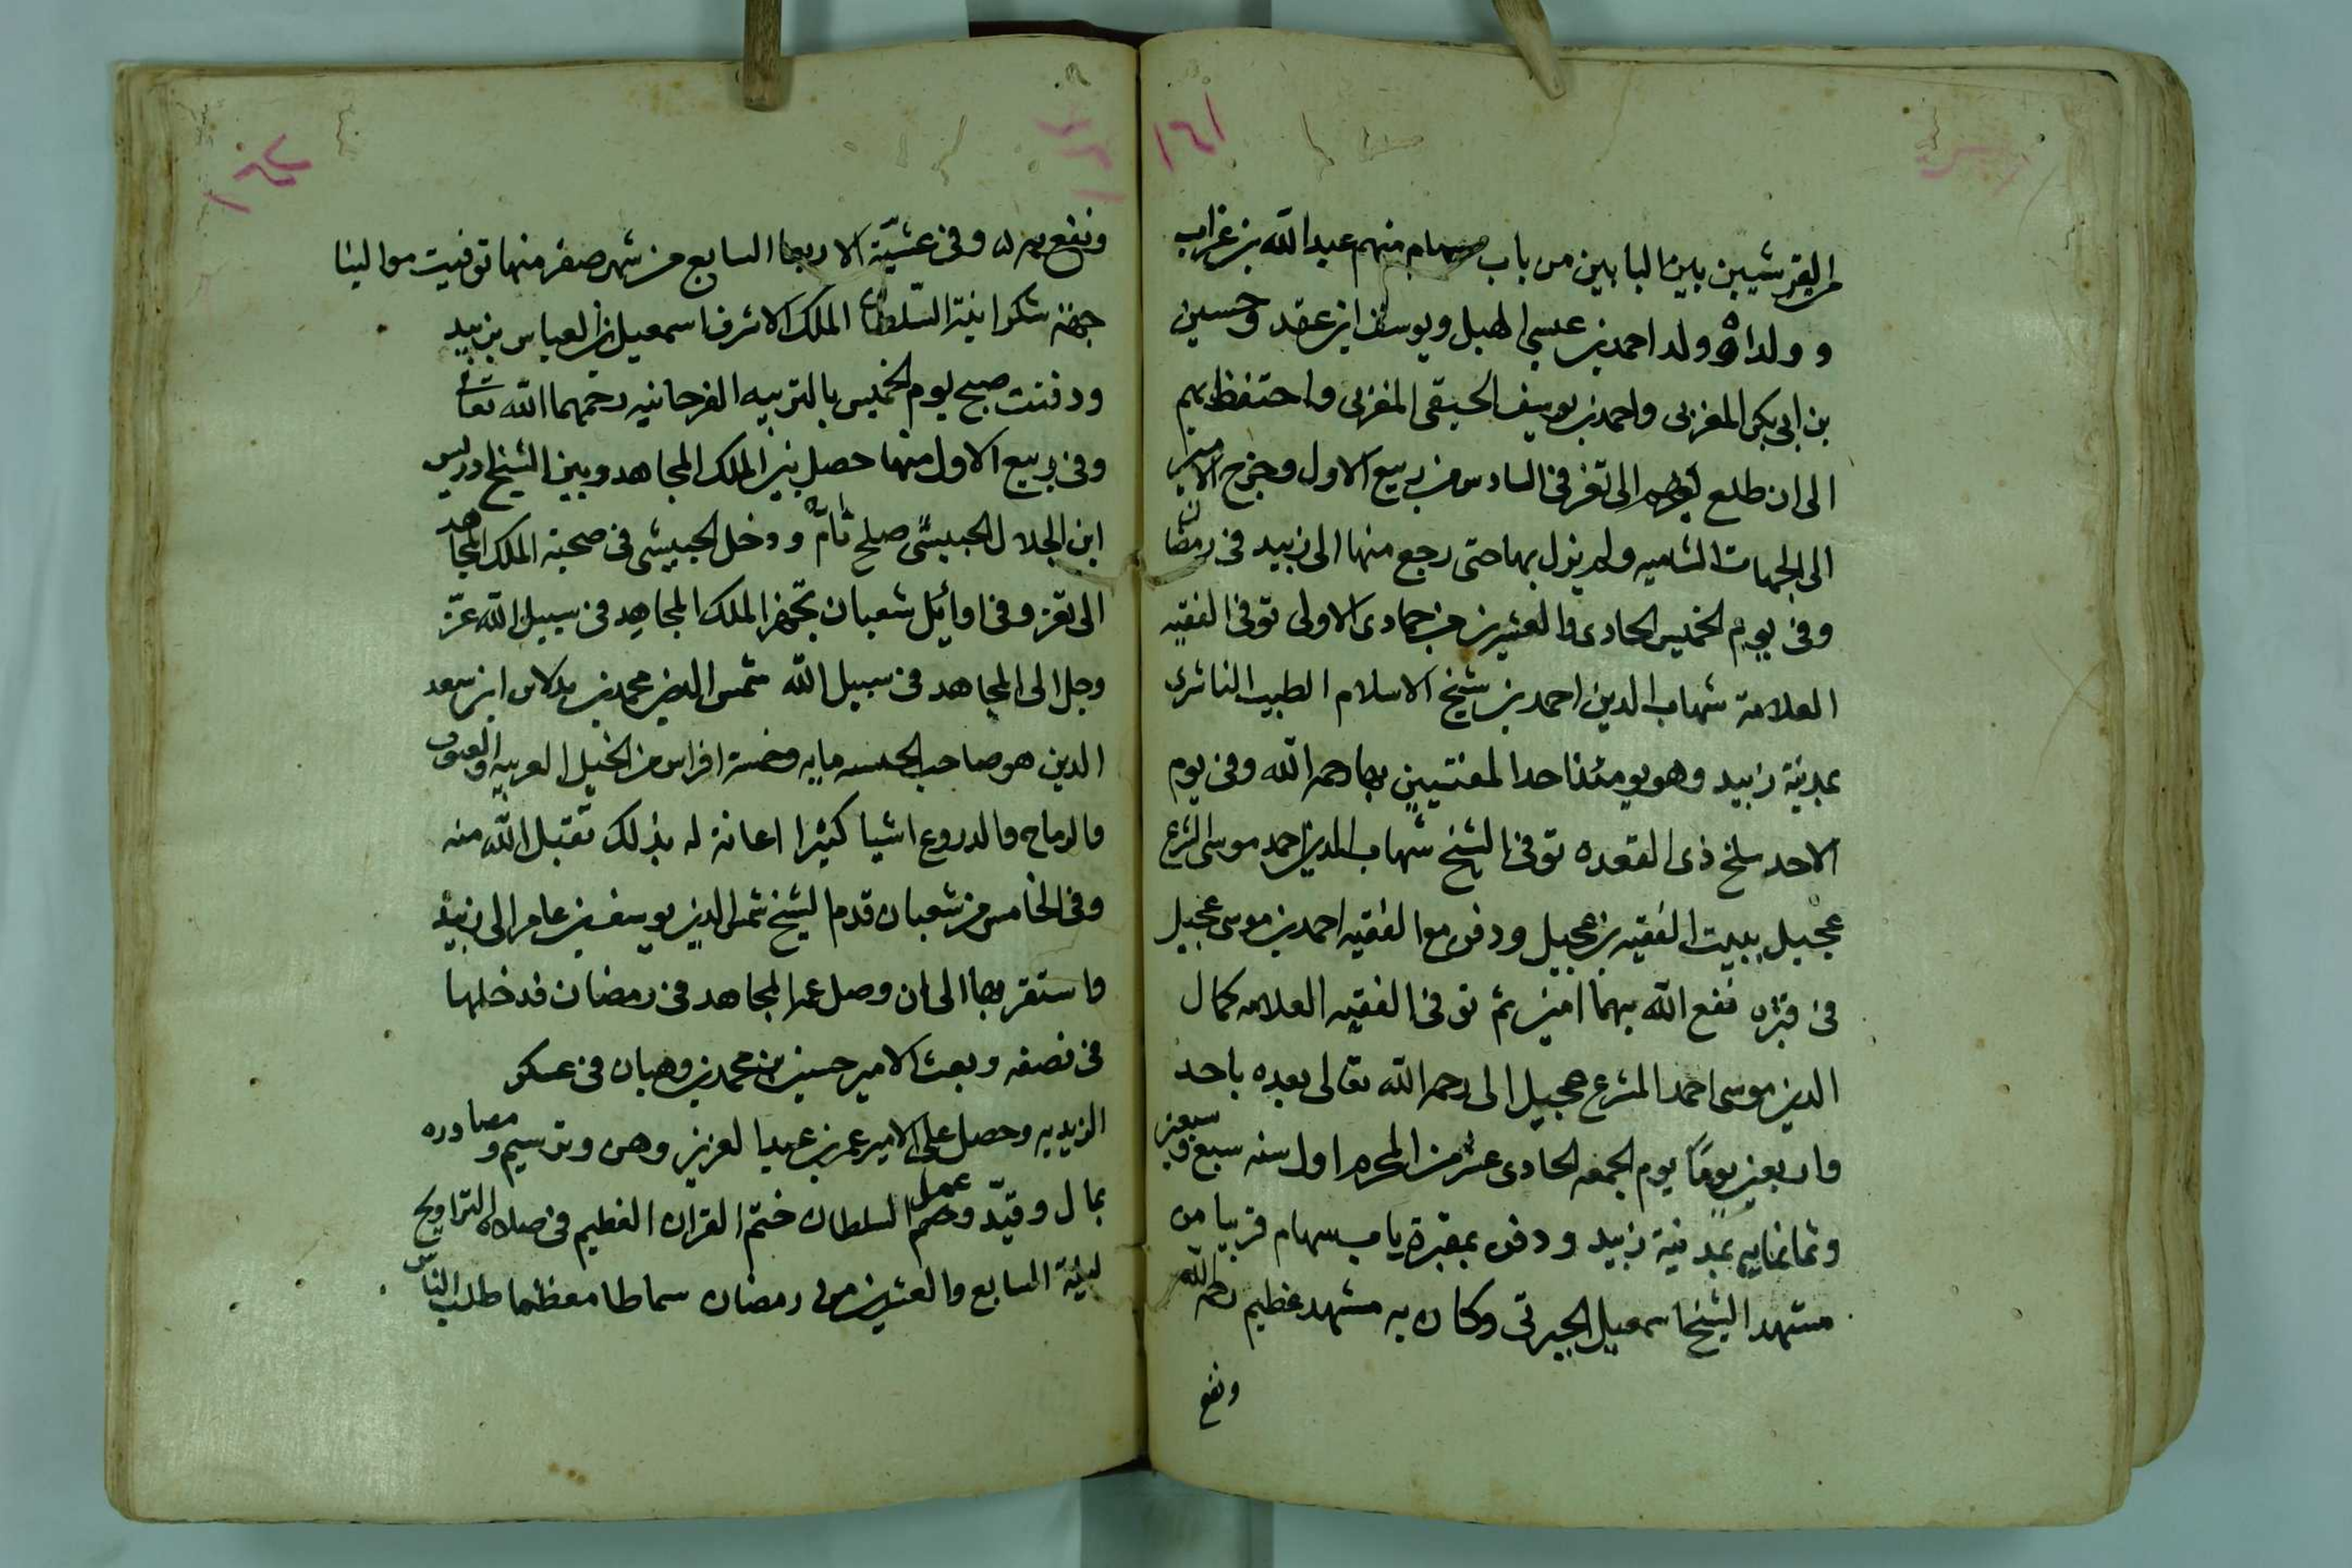 ١٤١
القرشيين بين البابين من باب سهام منهم عبد الله بن غراب
وولداه وولد احمد بن عيسى الهبل ويوسف ابن عقد وحسين
بن ابي بكر المغربى واحمد بن يوسف الحبقى المغربى واحتفظ بهم
الى ان طلع بهم الى تعز فى السادس من ربيع الاول وخرج الامير
الى الجهات الشاميه ولم يزل بها حتى رجع منها الى زبيد فى رمضان
وفى يوم الخميس الحادى والعشرين من جمادى الاولى توفى الفقيه
العلامة شهاب الدين احمد بن شيخ الاسلام الطيب الناشرى
بمدينة زبيد وهو يومئذ احد المفتيين بها رحمه الله وفى يوم
الاحد سلخ ذى القعده توفى الشيخ شهاب الدين احمد موسى المشرع
عجيل ببيت الفقيه بن عجيل ودفن مع الفقيه احمد بن موسى عجيل
فى قبره نفع الله بهما امين ثم توفى الفقيه العلامه كمال
الدين موسى احمد المشرع عجيل الى رحمه الله تعالى بعده باحد
واربعين يومًا يوم الجمعه الحادى عشر من المحرم اول سنه سبع وسبعين
وثمانمايه بمدينة زبيد ودفن بمقبرة باب سهام قريبا من
مشهد الشيخ اسمعيل الجبرتى وكان به مشهد عظيم رحمه الله
ونفع
ونفع به وفى عشيّة الاربعا السابع من شهر صفر منها توفيت موالينا
جهة شكر ابنة السّلطان الملك الاشرف اسمعيل بن العباس بزبيد
ودفنت صبح يوم الخميس بالتربيه الفرحانيه رحمهما الله تعالى
وفى ربيع الاول منها حصل بين الملك المجاهد وبين الشيخ ادريس
ابن الجلال الحبيشى صلح تامّ ودخل الحبيشى فى صحبة الملك المجاهد
الى تعز وفى اوائل شعبان تجهز الملك المجاهد فى سبيل الله عزّ
وجل الى المجاهد فى سبيل الله شمس الدين محمد بن بدلاى ابن سعد
الدين هو صاحب الحبشه مايه وخمسة افراس من الخيل العربيه والقسى
والرماح والدروع اشيا كثيرا اعانة له بذلك تقبل الله منه
وفى الخامس من شعبان قدم الشيخ شمس الدين يوسف بن عامر الى زبيد
واستقر بها الى ان وصل عمه المجاهد فى رمضان فدخلها
فى نصفه وبعث الامير حسين بن محمد بن وهبان فى عسكر
الزيديه وحصل على الامير عمر بن عبد العزيز وهن وترسيم ومصادره
بمال وقيّد وعمل السلطان ختم القران العظيم فى صلاة التراويح
ليلة السابع والعشرين من رمضان سماطا معظما طلب الناس